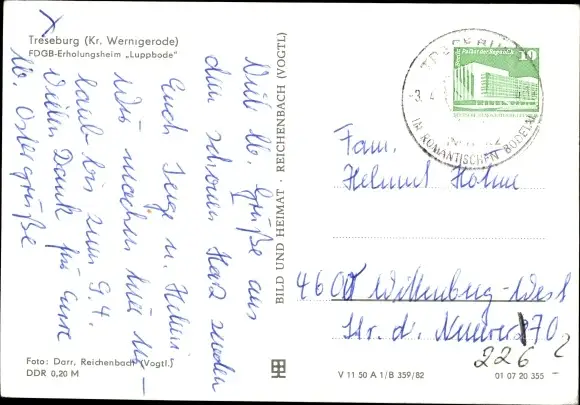 Treseburg (Kr. Wernigerode)
FDGB-Erholungsheim „Luppbode"
Viele lb. Grüße aus
dem schönen Harz senden
Euch Inge u. Helmi
Wir machen hier Ur-
laub bis zum 9.4.
Vielen Dank für Eure
lb. Ostergrüße
Foto: Darr, Reichenbach (Vogtl.)
DDR 0,20 M
BILD UND HEIMAT · REICHENBACH (VOGTL)
TRESEBURG
IM ROMANTISCHEN BODETAL
10
Fam.
Helmut Hohne
4600 Wittenberg-West
Str. d. Neuerer 70
226
V 11 50 A 1/B 359/82
01 07 20 355